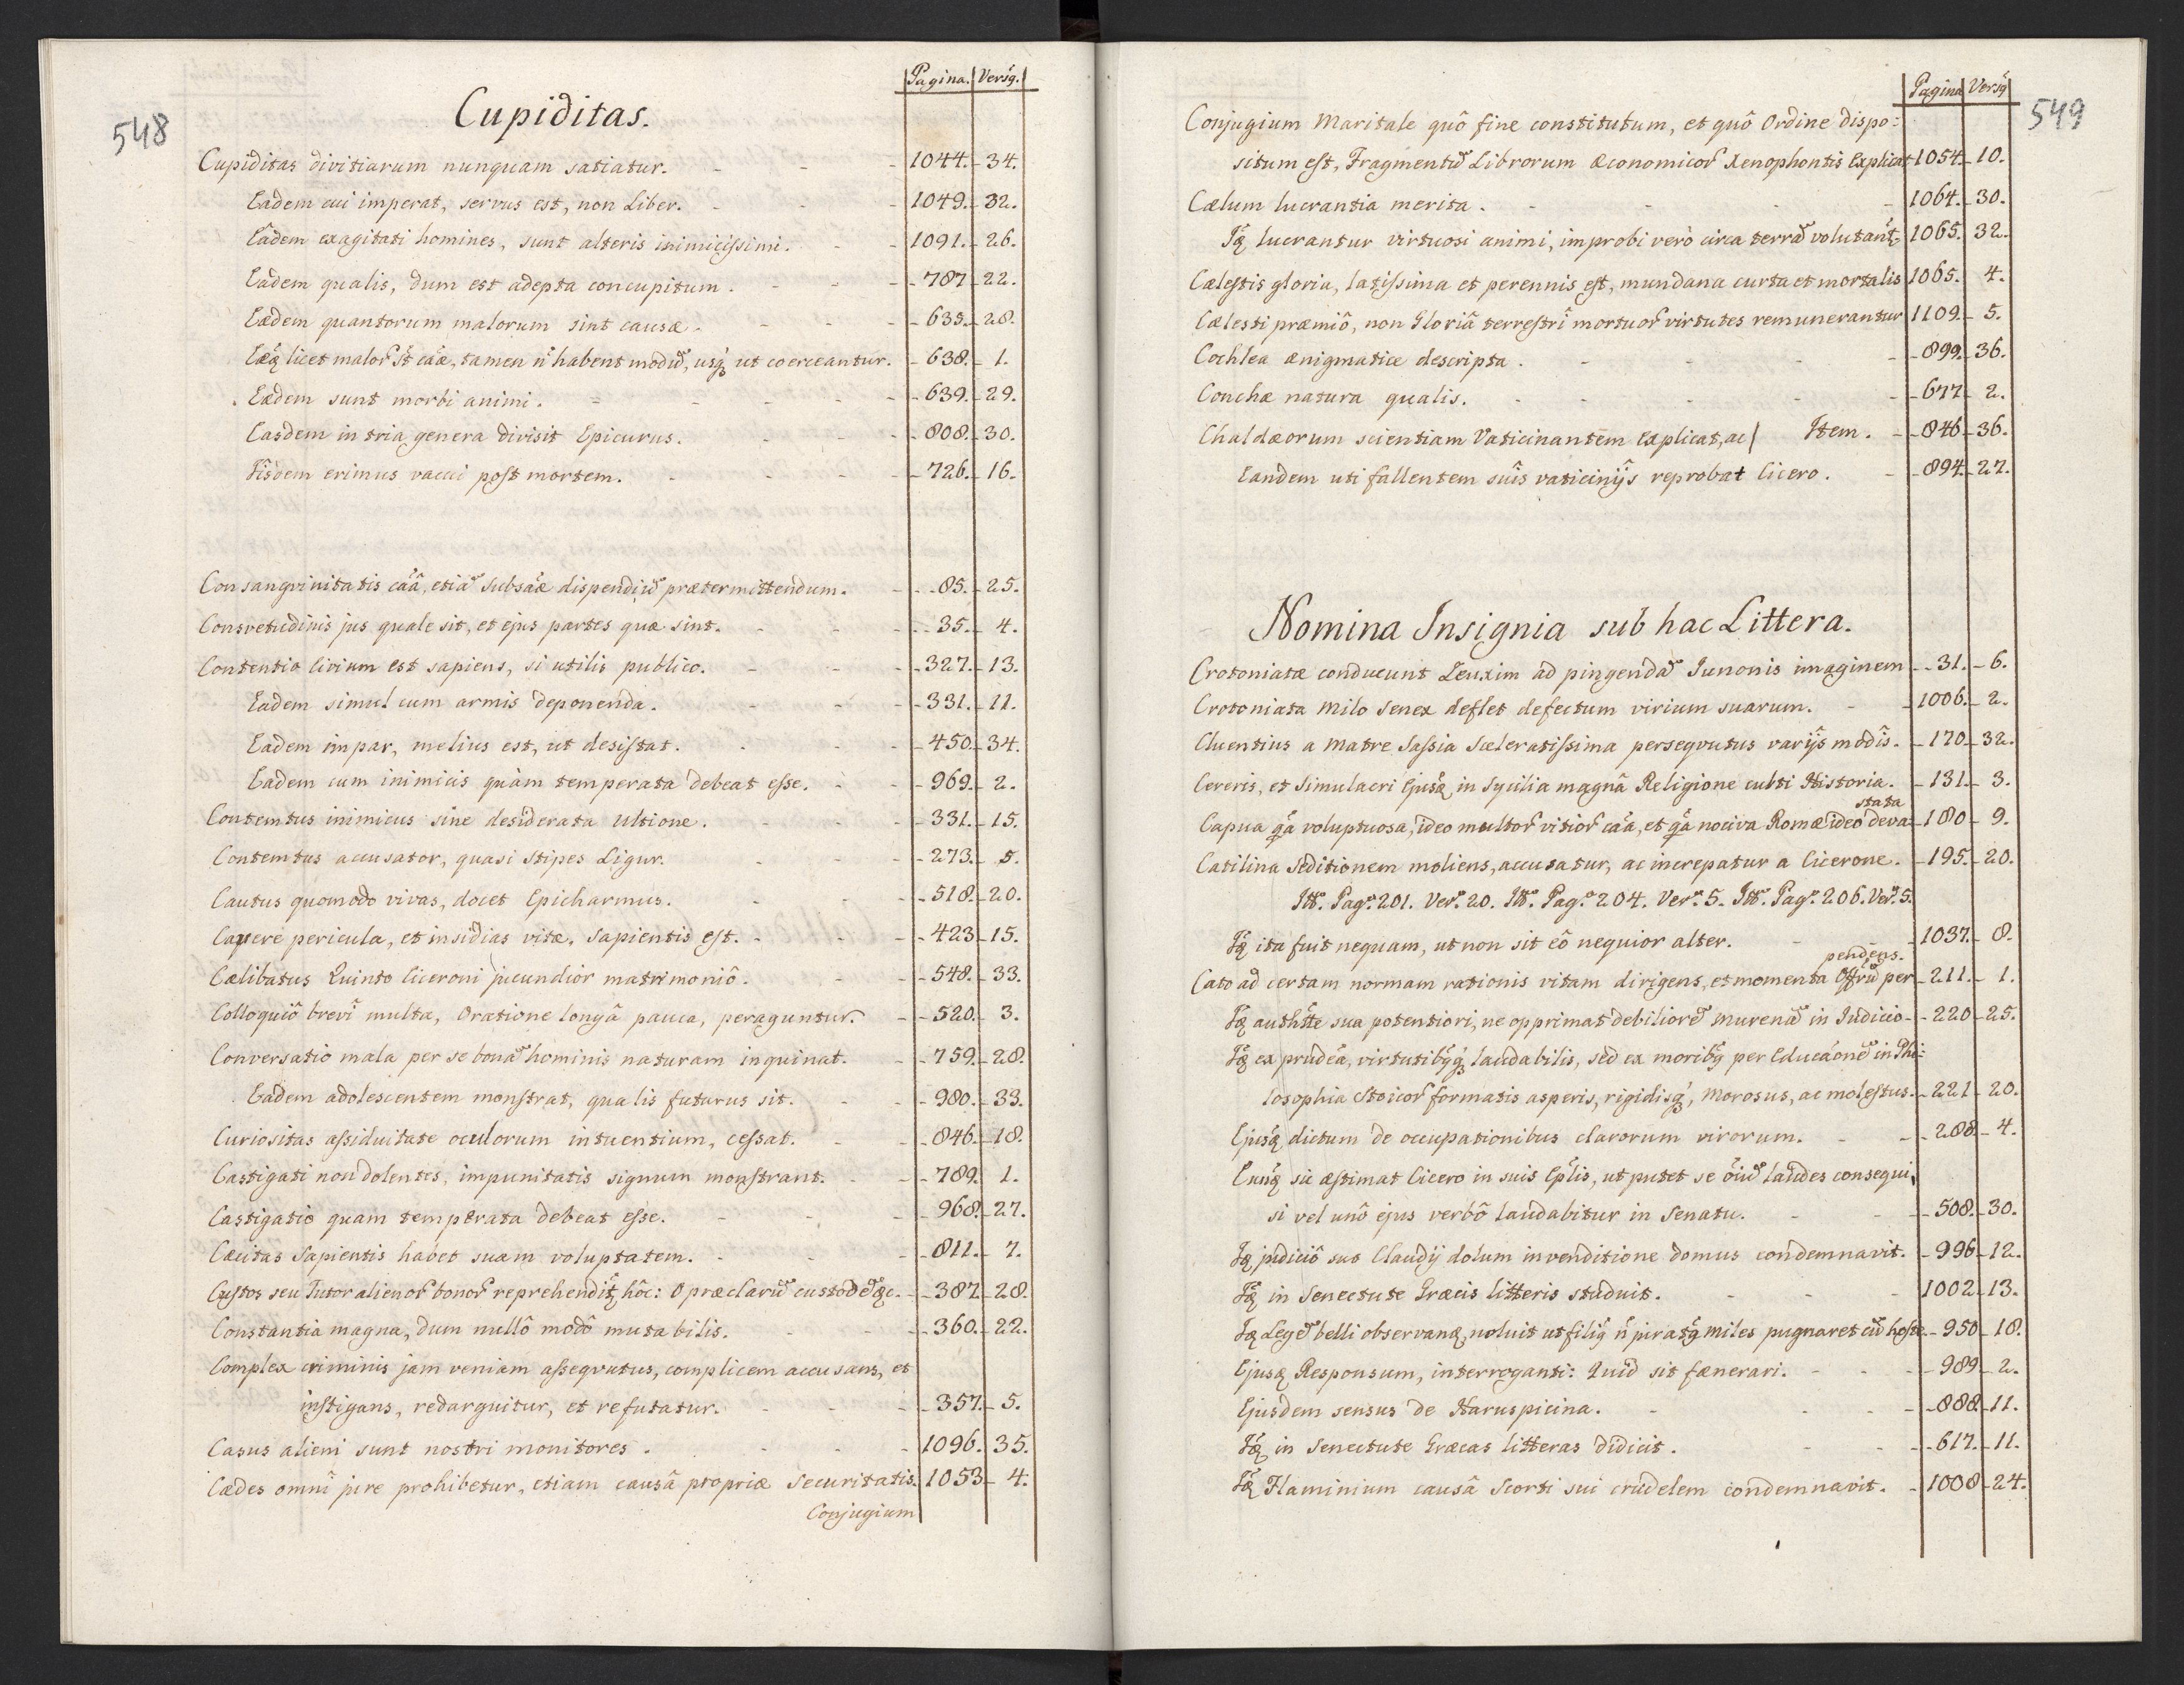 548
Pagina. Versꝰ.
Cupiditas.
Cupiditas divitiarum nunquam satiatur. - - - 1044. - 34.
Eadem cui imperat, servus est, non Liber. - - - 1049. - 32.
Eâdem exagitati homines, sunt alteris inimicissimi. - - 1091. - 26.
Eadem qualis, dum est adepta concupitum. - - - 787 - 22.
Eædem quantorum malorum sint causæ. - - - 635. - 28.
licet malor̃ st̃ cãæ, tamen ñ habent modũ, usq̃ ut coerceantur. - 638. - 1.
Eædem sunt morbi animi. - - - 639. - 29.
Easdem in tria genera divisit Epicurus. - - - 808. - 30.
Iîsdem erimus vacui post mortem. - - - 726. - 16.
Consangvinitatis cãâ, etiã subsãæ dispendiũ prætermittendum. - 85. - 25.
Consvetudinis jus quale sit, et ejus partes quæ sint. - - 35. - 4.
Contentio Civium est sapiens, si utilis publico. - - - 327. - 13.
Eadem simul cum armis deponenda. - - - 331. - 11.
Eadem impar, melius est, ut desistat. - - - 450. - 34.
Eadem cum inimicis quàm temperata debeat esse. - - 969. - 2.
Contemtus inimicus sine desiderata Ultione. - - - 331. - 15.
Contemtus accusator, quasi Stipes Ligur. - - - 273. - 5.
Cautus quomodo vivas, docet Epicharmus. - - - 518. - 20.
Cavere pericula, et insidias vitæ, Sapientis est. - - - 423 - 15.
Cælibatus Quinto Ciceroni jucundior matrimoniô. - - - 548. - 33.
Colloquiô brevî multa, Oratione longâ pauca, peraguntur. - - 520. - 3.
Conversatio mala per se bonã hominis naturam inquinat. - - 759. - 28.
Eadem adolescentem monstrat, qualis futurus sit. - - 980. - 33.
Curiositas assiduitate oculorum intuentium, cessat. - - 846. - 18.
Castigati non dolentes, impunitatis signum monstrant. - - 789. 1.
Castigatio quam temperata debeat esse. - - - 968. - 27.
Cæcitas Sapientis habet suam voluptatem. - - - 811. - 7.
Custos seu Tutor alienor̃ bonor̃ reprehendit hôc: O præclarũ custodẽ &c. - 387. - 28.
Constantia magna, dum nullô modô mutabilis. - - - 360. - 22.
Complex criminis jam veniam assequutus, complicem accusans, et
instigans, redarguitur, et refutatur. - - - 357. - 5.
Casus alieni sunt nostri monitores. - - - 1096. 35.
Cædes omnî jure prohibetur, etiam causâ propriæ Securitatis. 1053 - 4.
Conjugium
549
Pagina Versꝰ
Conjugium Maritale quô fine constitutum, et quô Ordine dispo:
situm est, Fragmentũ Librorum Æconomicor̃ Xenophontis Explicat 1054. - 10.
Cælum lucrantia merita. - - - 1064. - 30.
lucrantur virtuosi animi, improbi verò circa terrã volutant. - 1065. 32.
Cælestis gloria, latissima et perennis est, mundana curta et mortalis 1065. 4.
Cælesti præmiô, non Gloriâ terrestrî mortuor̃ virtutes remunerantur 1109. - 5.
Cochlea ænigmatice descripta. - - - 899. - 36.
Conchæ natura qualis. - - - 677 - 2.
Chaldæorum scientiam Vaticinantem Explicat, ac/ Item. - 846 - 36.
Eandem uti fallentem suîs vaticinijs reprobat Cicero. - 894. - 27.
Nomina Insignia sub hac Littera.
Crotoniatæ conducunt Zeuxim ad pingendã Junonis imaginem - 31. - 6.
Crotoniata Milo Senex deflet defectum virium suarum. - 1006. - 2.
Cluentius a Matre Sassia Sceleratissima persequutus varijs modîs. - 170. - 32.
Cereris, et Simulacri Ejusq̃ in Sycilia magnâ Religione culti Historia. - 131. - 3.
stata
Capua q̃a voluptuosa, ideo multor̃ vitior̃ cãa, et q̃a nociva Romæ ideo deva: - 180 - 9.
Catilina Seditionem moliens, accusatur, ac increpatur a Cicerone. - 195. - 20.
Itẽ. Pagª. 201. Verˢ. 20. Itẽ. Pag.ª 204. Verˢ. 5. Itẽ. Pagª. 206. Verˢ. 5.
ita fuit nequam, ut non sit eô nequior alter. - 1037. - 8.
pendens.
Cato ad certam normam rationis vitam dirigens, et momenta Offrũ per - 211. - 1.
authtte sua potentiori, ne opprimat debiliorẽ Murenã in Iudicio - 220 - 25.
ex prudẽa, virtutibꝰq̃ laudabilis, sed ex moribꝰ per Educãonẽ in Phi:
losophia Stoicor̃ formatis asperis, rigidisq̃, Morosus, ac molestus. - 221 - 20.
Ejusq̃ dictum de occupationibus clarorum virorum. - - 288. - 4.
sic æstimat Cicero in suis Eplis, ut putet se õiũ laudes consequi,
si vel unô ejus verbô laudabitur in Senatu. - - 508. - 30.
judiciô suo Claudij dolum in venditione domus condemnavit. - 996 - 12.
in Senectute Græcis litteris studuit. - - - 1002. 13.
Legẽ belli observans, noluit ut filiꝰ ñ juratꝰ miles pugnaret cũ hoste. - 950 - 18.
Ejusq̃ Responsum, interroganti: Quid sit fænerari. - - - 989 - 2.
Ejusdem sensus de Haruspicina. - - - 888. - 11.
in Senectute Græcas litteras didicit. - - - 617. - 11.
Flaminium causâ Scorti sui crudelem condemnavit. - 1008 - 24.